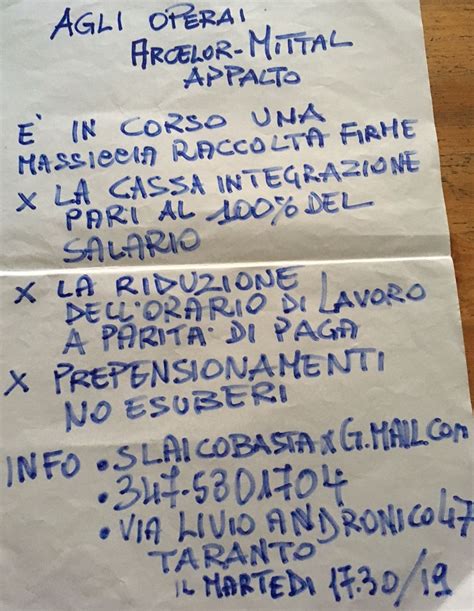 AGLI OPERAI
ARCELOR-MITTAL
APPALTO
E' IN CORSO UNA
MASSICCIA RACCOLTA FIRME
X LA CASSA INTEGRAZIONE
PARI AL 100% DEL
SALARIO
X LA RIDUZIONE
DELL'ORARIO DI LAVORO
A PARITA' DI PAGA
X PREPENSIONAMENTI
NO ESUBERI
INFO • SLAICOBASTAXG.MAIL COM
• 347-5301704
• VIA LIVIO ANDRONICO 47
TARANTO
IL MARTEDI 17.30/19